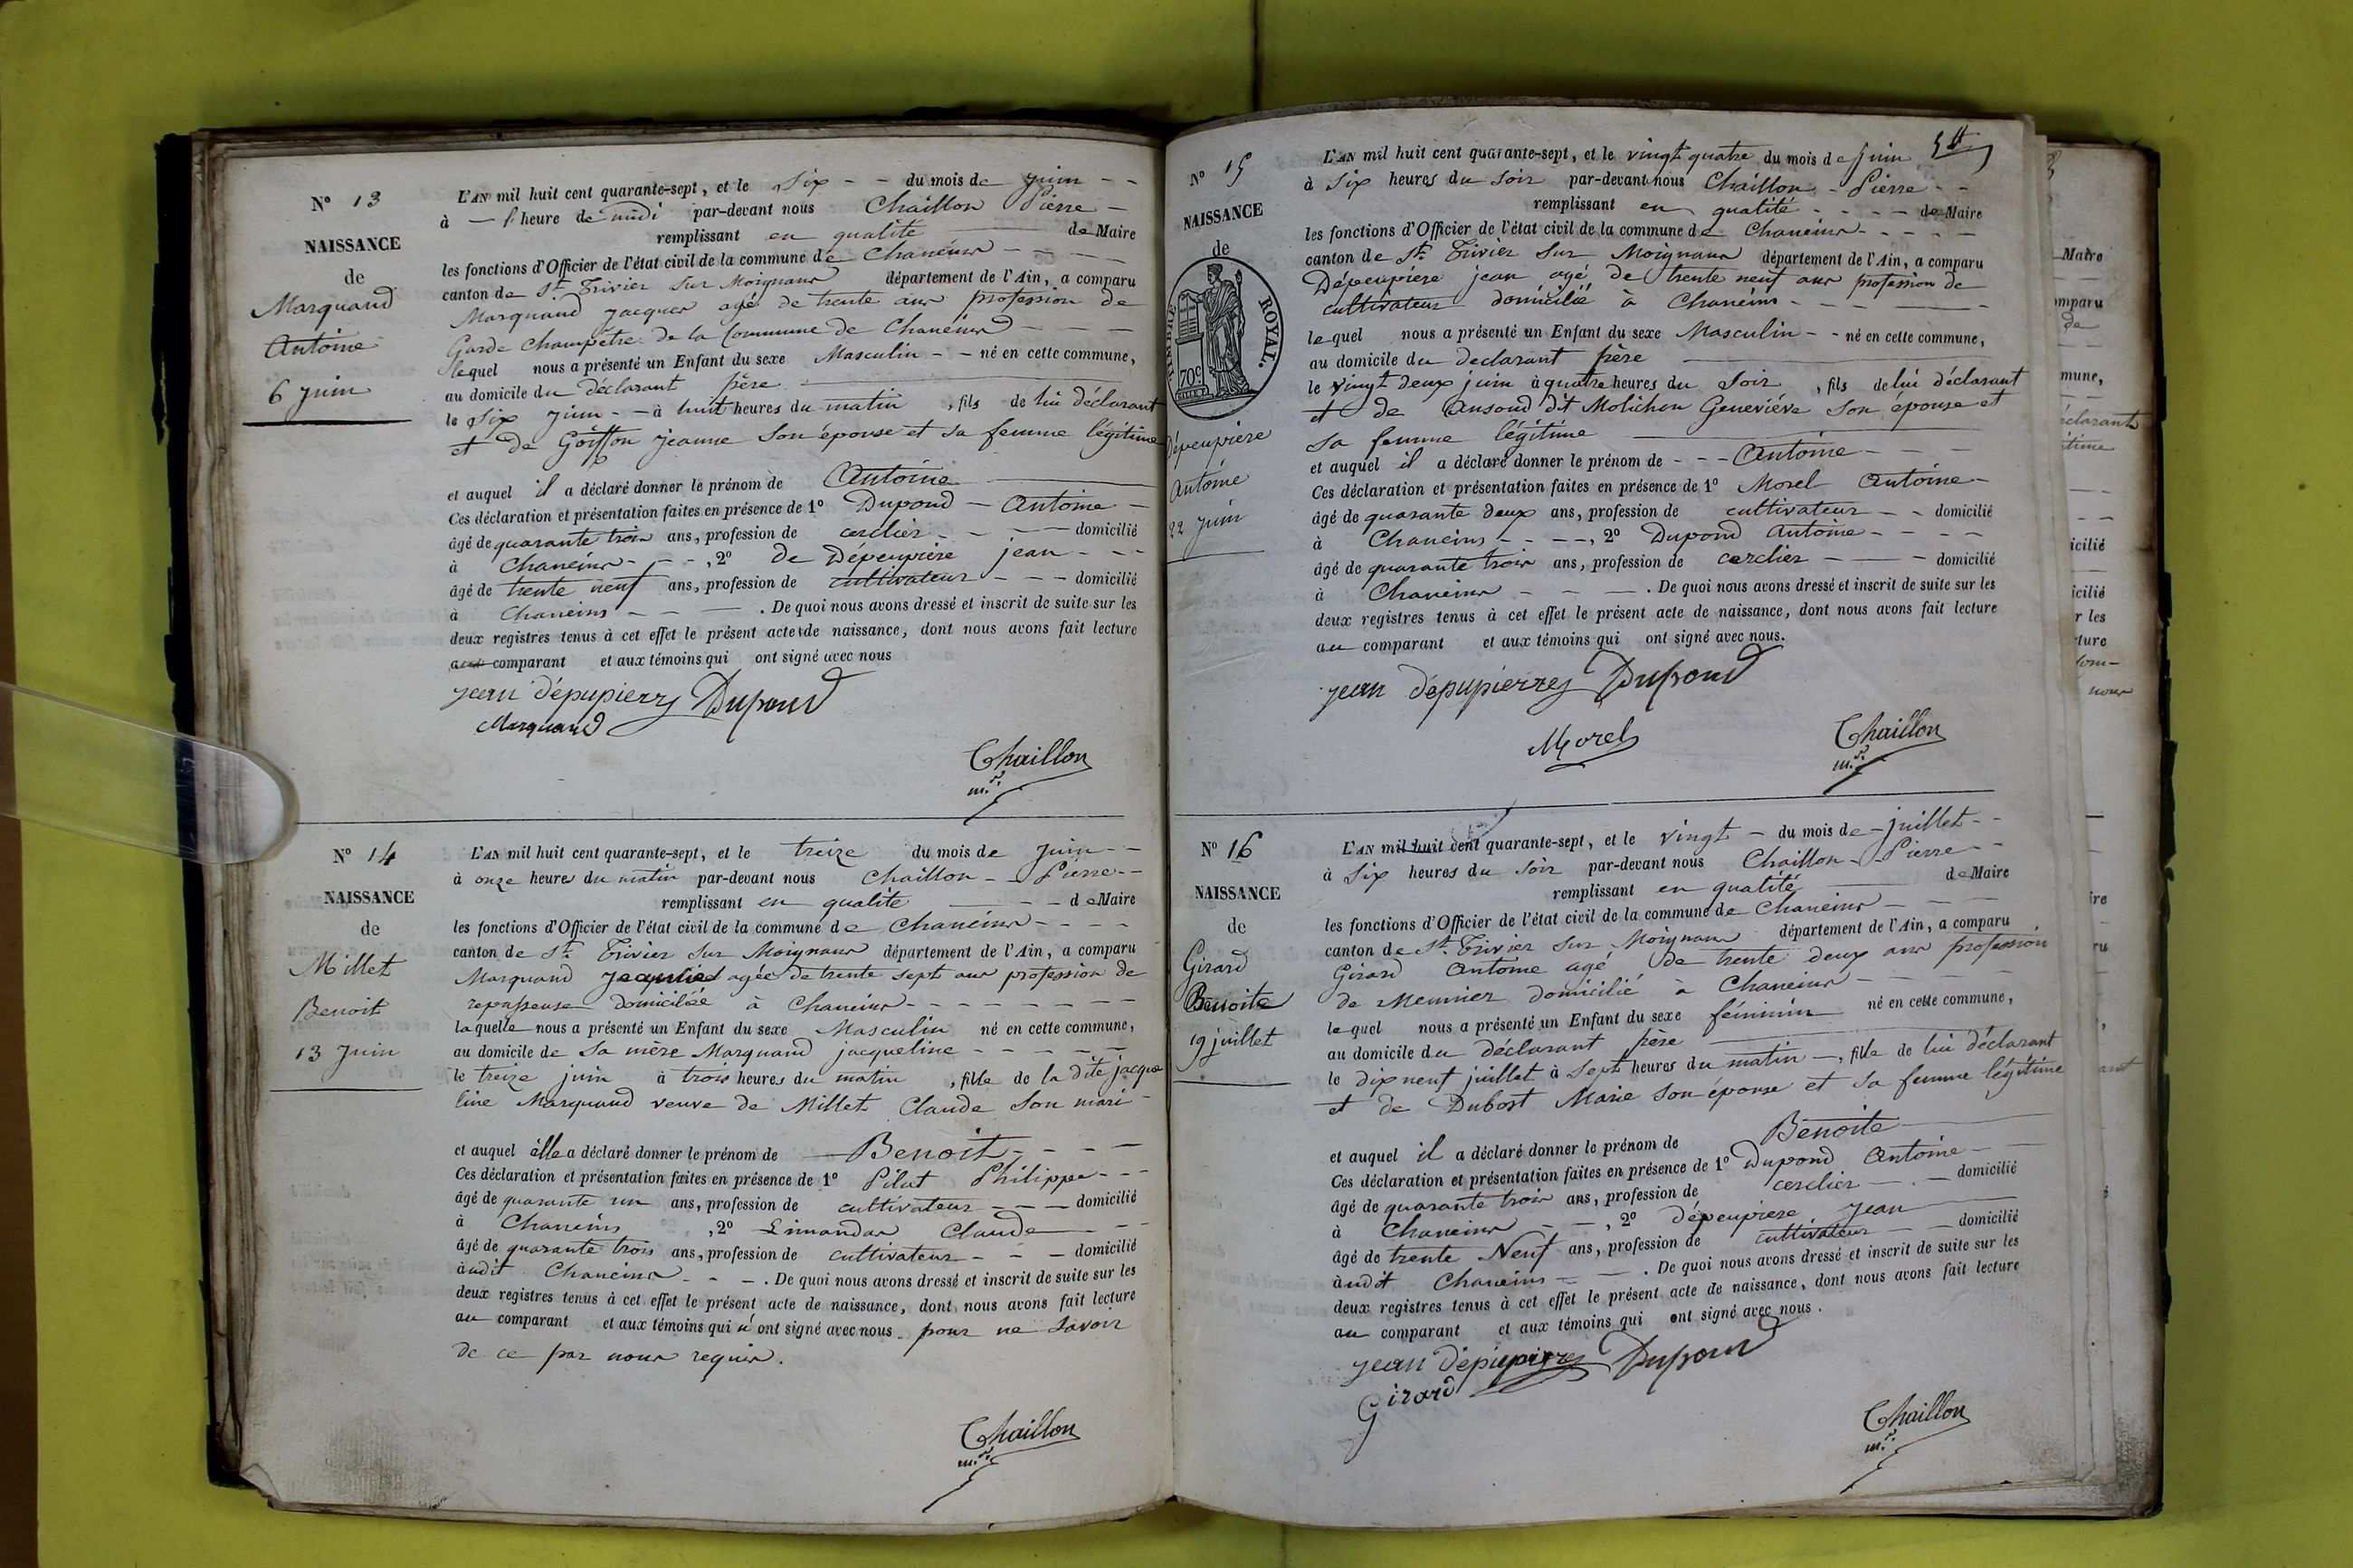 N° 13
NAISSANCE
de
Marquand
Antoine
6 Juin
L'AN mil huit cent quarante-sept, et le Six - - du mois de Juin - -
à - l'heure de midi par-devant nous Chaillon Pierre -
remplissant en qualité de Maire
les fonctions d'Officier de l'état civil de la commune de Chaneins - - -
canton de St. Trivier Sur Moignans département de l'Ain, a comparu
Marquand Jacques agé de trente ans profession de
Garde Champêtre de la Commune de Chaneins - - -
lequel nous a présenté un Enfant du sexe Masculin - - né en cette commune,
au domicile du déclarant père
le Six Juin - - à huit heures du matin , fils de lui déclarant
et de Goiffon Jeanne Son épouse et sa femme légitime
et auquel il a déclaré donner le prénom de Antoine
Ces déclaration et présentation faites en présence de 1° Dupond - Antoine -
âgé de quarante trois ans, profession de cerclier - - - domicilié
à Chaneins - - - , 2° de Dépeupière jean - - -
âgé de trente neuf ans, profession de cultivateur - - - domicilié
à Chaneins - - - . De quoi nous avons dressé et inscrit de suite sur les
deux registres tenus à cet effet le présent acte de naissance, dont nous avons fait lecture
au comparant et aux témoins qui ont signé avec nous
jean dépupierres Dupond
Marquand
Chaillon
m.re
N° 14
NAISSANCE
de
Millet
Benoit
13 Juin
L'AN mil huit cent quarante-sept, et le treize du mois de Juin - -
à onze heures du matin par-devant nous Chaillon - - Pierre - -
remplissant en qualité - - de Maire
les fonctions d'Officier de l'état civil de la commune de Chaneins - - - -
canton de St. Trivier Sur Moignans département de l'Ain, a comparu
Marquand agée de trente sept ans profession de
repasseuse domiciliée à Chaneins - - - - - - - -
laquelle nous a présenté un Enfant du sexe Masculin né en cette commune,
au domicile de sa mère Marquand jacqueline - - - - -
le treize juin à trois heures du matin , fille de la dite jacque
line Marquand veuve de Millet Claude Son mari -
et auquel elle a déclaré donner le prénom de Benoit - - - -
Ces déclaration et présentation faites en présence de 1° Pilut Philippe - - -
âgé de quarante un ans, profession de cultivateur - - - domicilié
à Chaneins , 2° Limandas Claude - -
âgé de quarante trois ans, profession de cultivateur - - - domicilié
àudit Chaneins - - - . De quoi nous avons dressé et inscrit de suite sur les
deux registres tenus à cet effet le présent acte de naissance, dont nous avons fait lecture
au comparant et aux témoins qui n'ont signé avec nous pour ne savoir
de ce par nous requis.
Chaillon
m.re
N° 15
NAISSANCE
de
TIMBRE ROYAL.
70c
Dépeupière
Antoine
22 Juin
L'AN mil huit cent quarante-sept, et le vingt quatre du mois de Juin
à Six heures du Soir par-devant nous Chaillon - Pierre - -
remplissant en qualité - - - - de Maire
les fonctions d'Officier de l'état civil de la commune de Chaneins - - - - -
canton de St. Trivier Sur Moignans département de l'Ain, a comparu
Dépeupière jean agé de trente neuf ans profession de
cultivateur domicilié à Chaneins - - - - -
lequel nous a présenté un Enfant du sexe Masculin - - né en cette commune,
au domicile du declarant père
le vingt deux juin à quatre heures du Soir , fils de lui déclarant
et de Ansoud dit Molichon Geneviéve Son épouse et
Sa femme légitime
et auquel il a déclaré donner le prénom de - - - Antoine - - -
Ces déclaration et présentation faites en présence de 1° Morel Antoine -
âgé de quarante deux ans, profession de cultivateur - - domicilié
à Chaneins - - - - , 2° Dupond Antoine - - - -
âgé de quarante trois ans, profession de cerclier - - domicilié
à Chaneins - - - . De quoi nous avons dressé et inscrit de suite sur les
deux registres tenus à cet effet le présent acte de naissance, dont nous avons fait lecture
au comparant et aux témoins qui ont signé avec nous.
jean dépupierres Dupond
Morel
Chaillon
m.re
N° 16
NAISSANCE
de
Girard
Benoite
19 juillet
L'AN mil huit cent quarante-sept, et le vingt - du mois de - juillet - -
à Six heures du Soir par-devant nous Chaillon - Pierre - -
remplissant en qualité de Maire
les fonctions d'Officier de l'état civil de la commune de Chaneins - - -
canton de St. Trivier Sur Moignans département de l'Ain, a comparu
Girard Antoine agé de trente deux ans profession
de Meunier domicilié à Chaneins - - - -
lequel nous a présenté un Enfant du sexe féminin né en cette commune,
au domicile du déclarant père
le dix neuf juillet à Sept heures du matin - , fille de lui déclarant
et de Dubost Marie Son épouse et sa femme légitime
et auquel il a déclaré donner le prénom de Benoite
Ces déclaration et présentation faites en présence de 1° Dupond Antoine -
âgé de quarante trois ans, profession de cerclier - - domicilié
à Chaneins - - , 2° dépeupière Jean
âgé de trente Neuf ans, profession de cultivateur - - domicilié
àudit Chaneins - - . De quoi nous avons dressé et inscrit de suite sur les
deux registres tenus à cet effet le présent acte de naissance, dont nous avons fait lecture
au comparant et aux témoins qui ont signé avec nous.
jean dépupierres Dupond
Girard
Chaillon
m.re